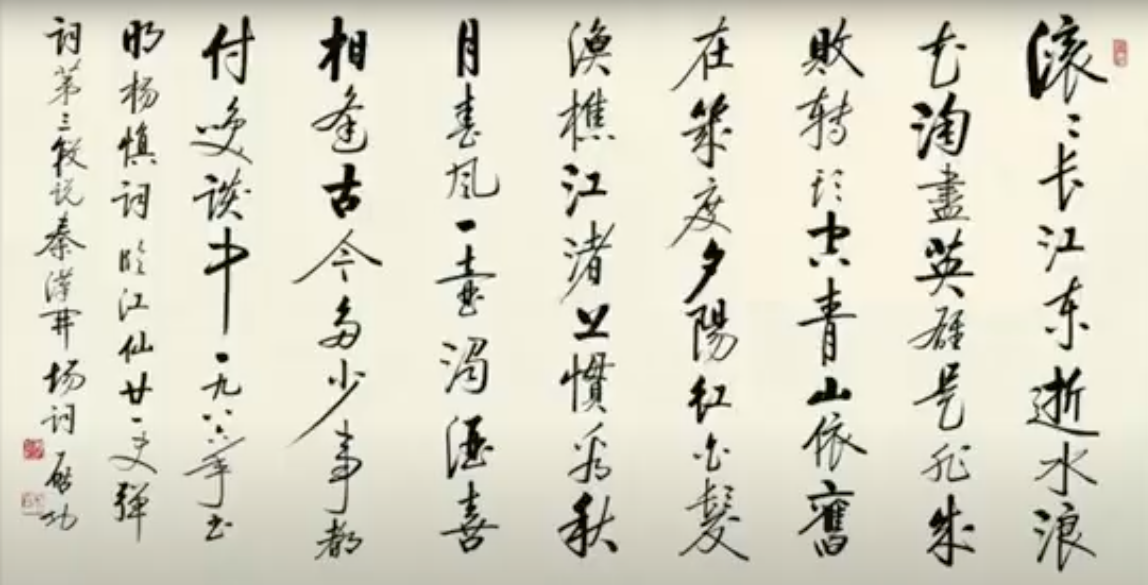 滚〻长江东逝水浪
花淘盡英雄是非成
敗转头空青山依舊
在幾度夕陽红白髮
渔樵江渚上慣看秋
月春风一壺濁酒喜
相逢古今多少事都
付笑谈中 一九八六年书
明杨慎词临江仙廿一史弹
词第三段说秦漢开场词 启功